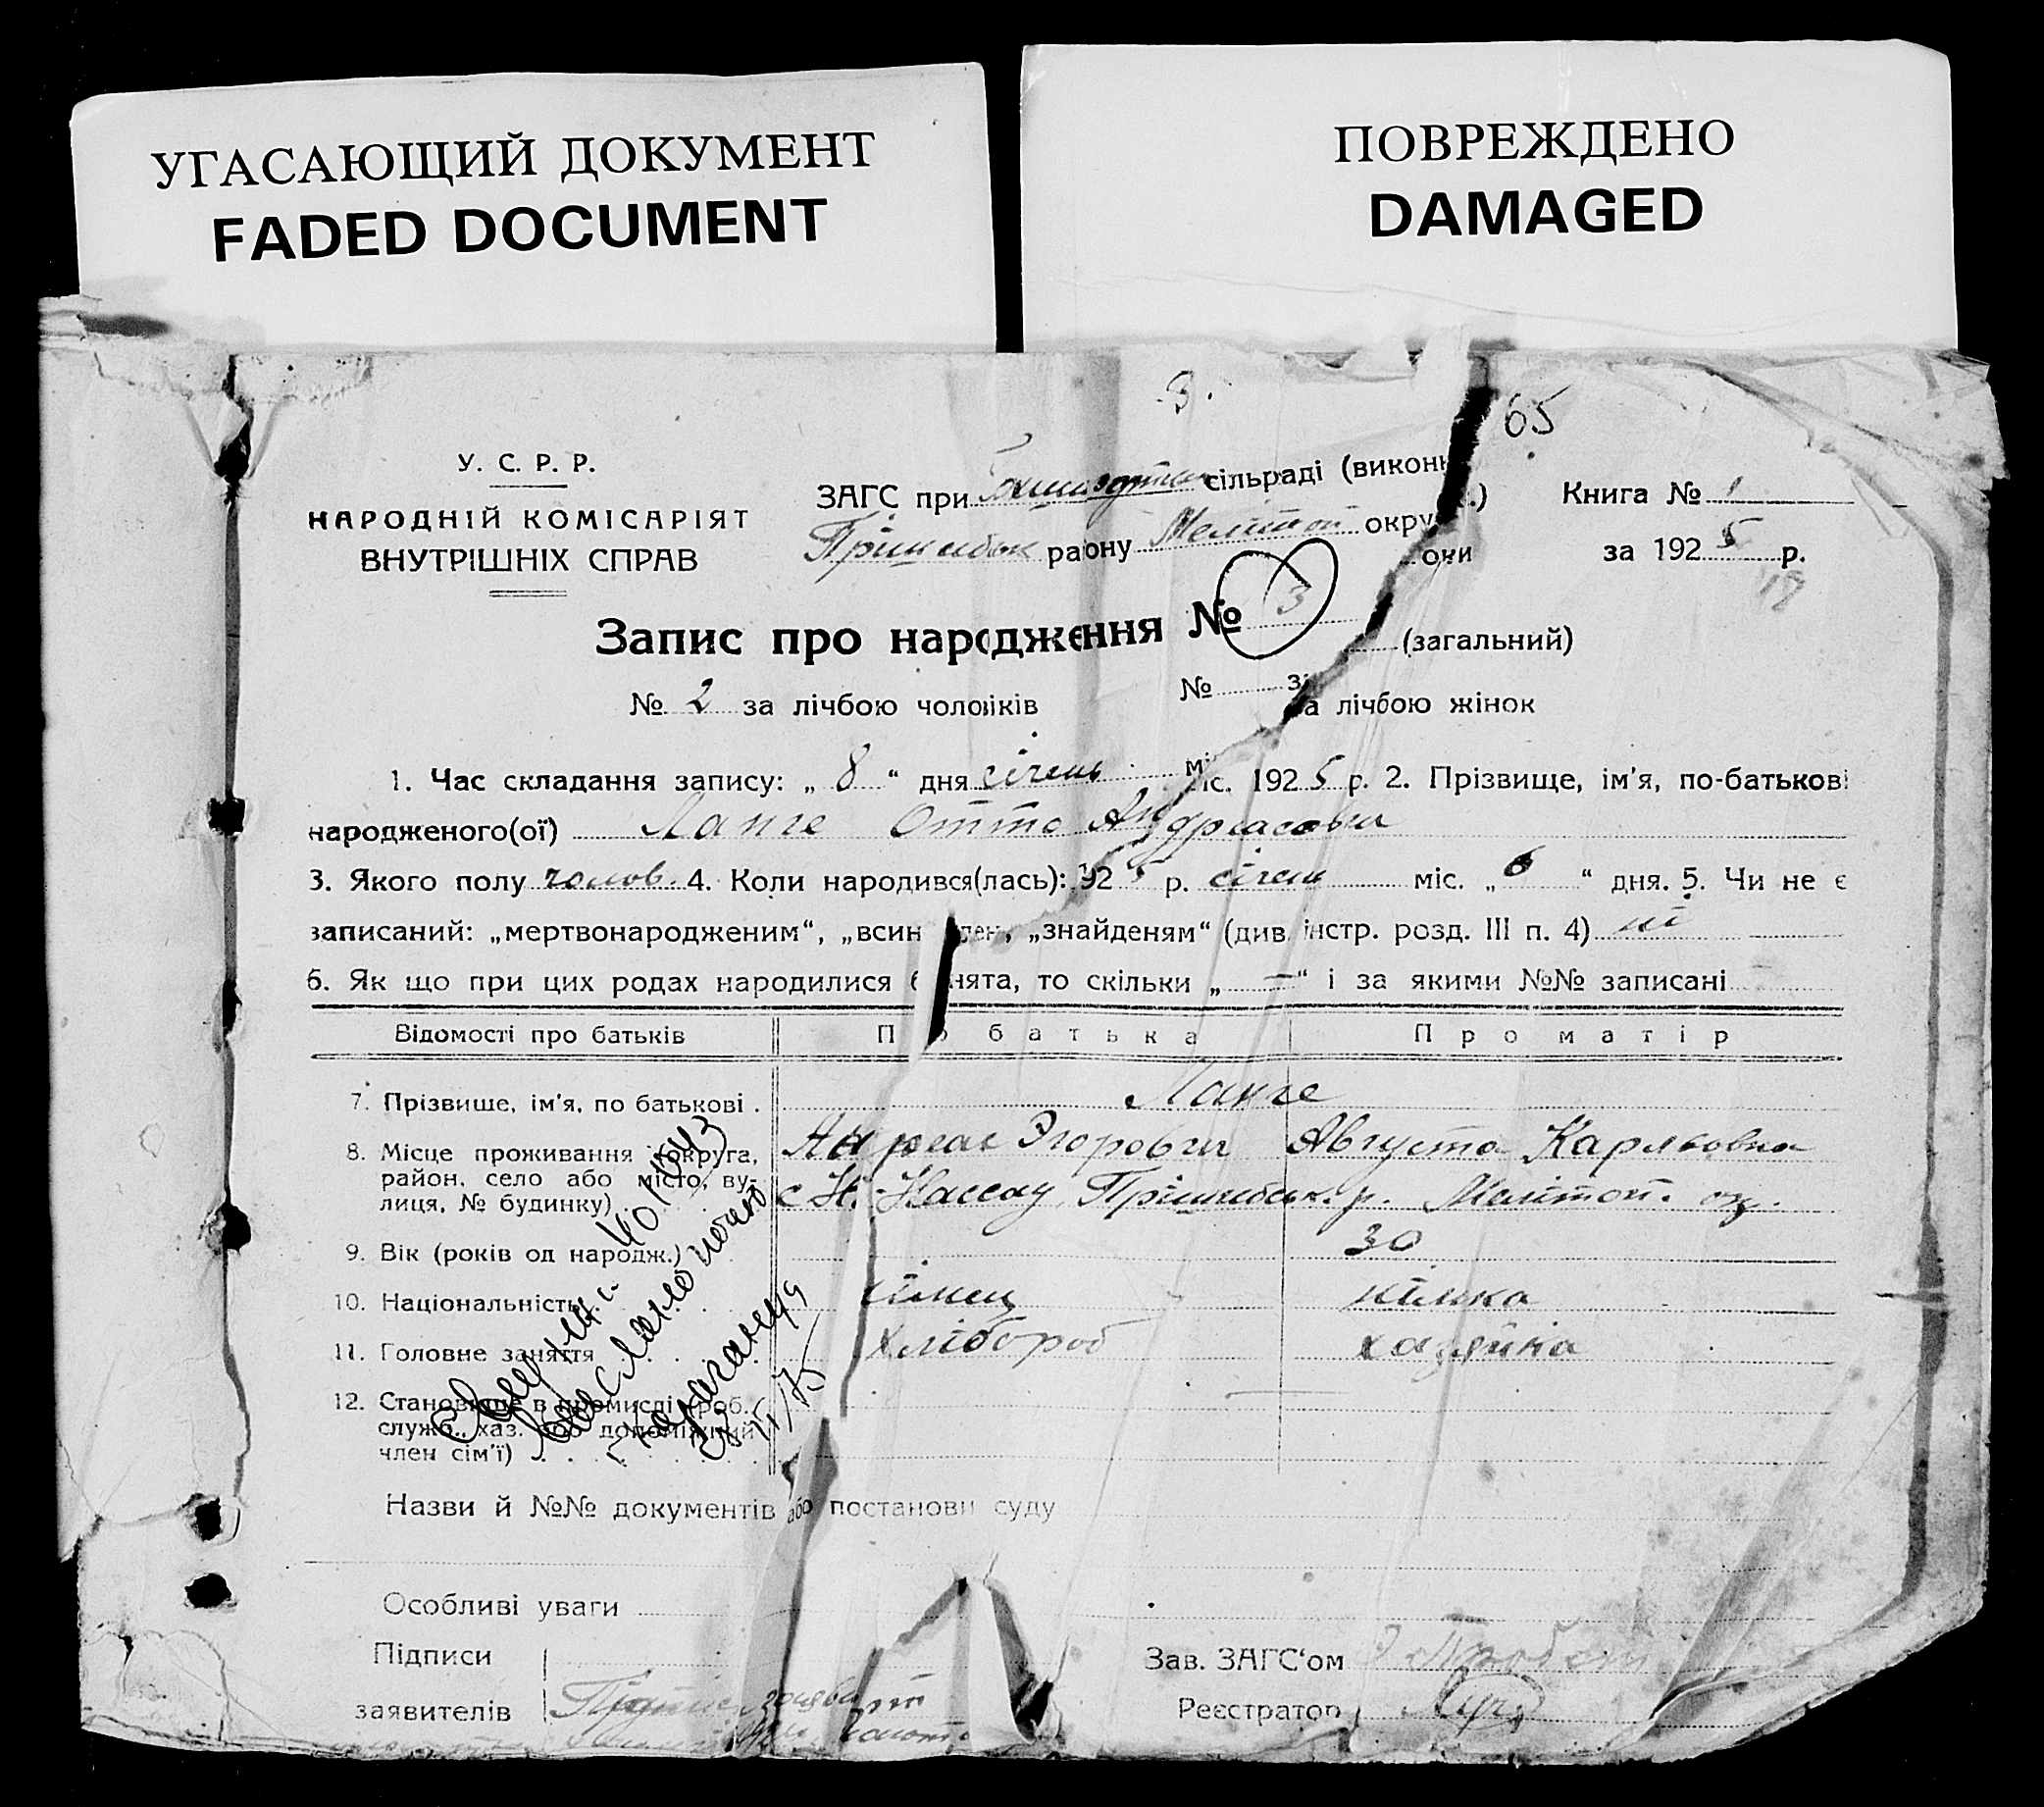 УГАСАЮЩИЙ ДОКУМЕНТ
FADED DOCUMENT
ПОВРЕЖДЕНО
DAMAGED
3.
65
У. С. Р. Р.
НАРОДНІЙ КОМІСАРІЯТ
ВНУТРІШНІХ СПРАВ
ЗАГС при сільраді (викон
району Меліт окру
Книга № 1
за 1925 р.
Запис про народження № 3 (загальний)
№ 2 за лічбою чоловіків
№ за лічбою жінок
1. Час складання запису: „ 8 “ дня січень міс. 1925 р. 2. Прізвище, ім'я, по-батькові
народженого(ої) Ланге Отто Андреасович
3. Якого полу чолов. 4. Коли народився(лась): 1925 р. січень міс. „ 6 “ дня. 5. Чи не є
записаний: „мертвонародженим“, „всин лен, „знайденям“ (див. інстр. розд. III п. 4) ні
6. Як що при цих родах народилися б нята, то скільки „ — “ і за якими №№ записані
Відомості про батьків
П о б а т ь к а
П р о м а т і р
7. Прізвище, ім'я, по батькові .
Ланге
Андреас Эгорович Августа Карловна
8. Місце проживання (округа,
район, село або місто, ву-
лиця, № будинку)
с Н. Нассау, Прішибськ. р. Меліт. ок.
9. Вік (років од народж.)
30
10. Національність
німец німка
11. Головне заняття
хлібороб хазяйка
12. Становище в промислі (роб.
служб., хаз. або допоміжний
член сім'ї)
Назви й №№ документів або постанови суду
Особливі уваги
Підписи
заявителів
Зав. ЗАГС'ом
Реєстратор